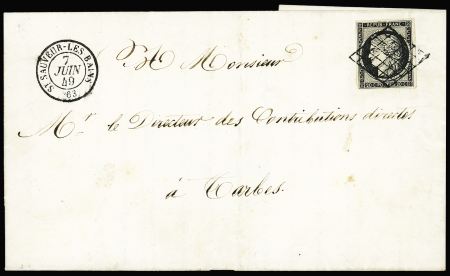 ST SAUVEUR-LES-BAINS
7
JUIN
49
(63)
REPUB. FRANC.
A Monsieur
Mr le Directeur des Contributions directes
à Tarbes.